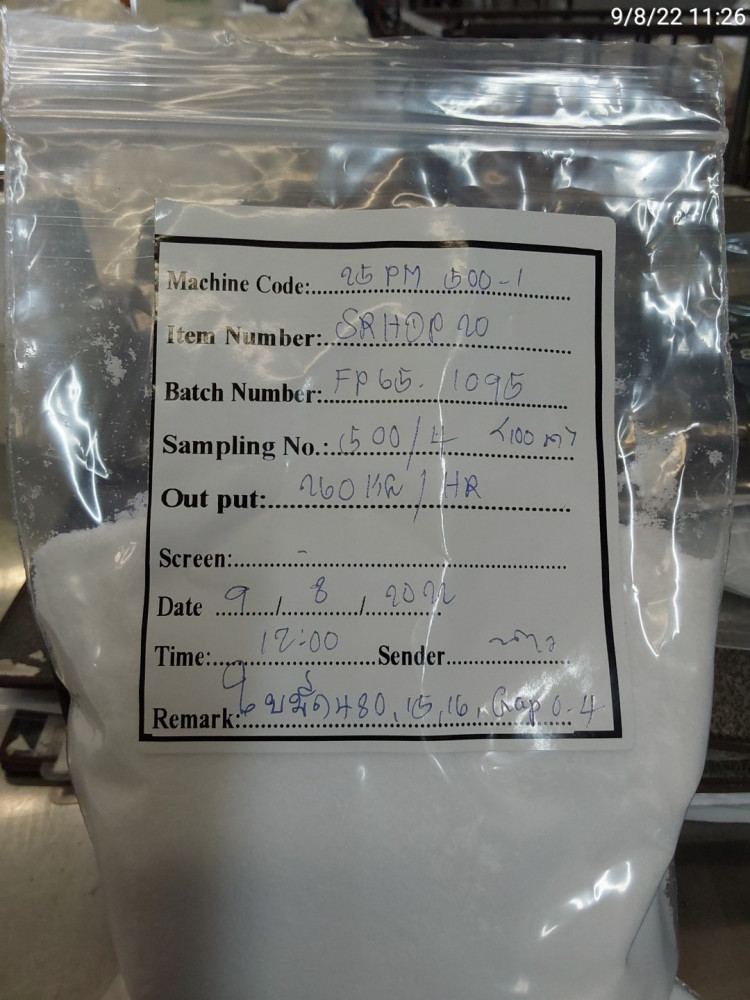 9/8/22 11:26
Machine Code: 25 PM 500-1
Item Number: SRHDP 20
Batch Number: FP65. 1095
Sampling No.: 500/4 <100 เตา
Out put: 260 KG / HR
Screen: -
Date 9 / 8 / 2022
Time: 12:00 Sender
Remark: ใบมีด 480, 15, 16, Gap 0.4